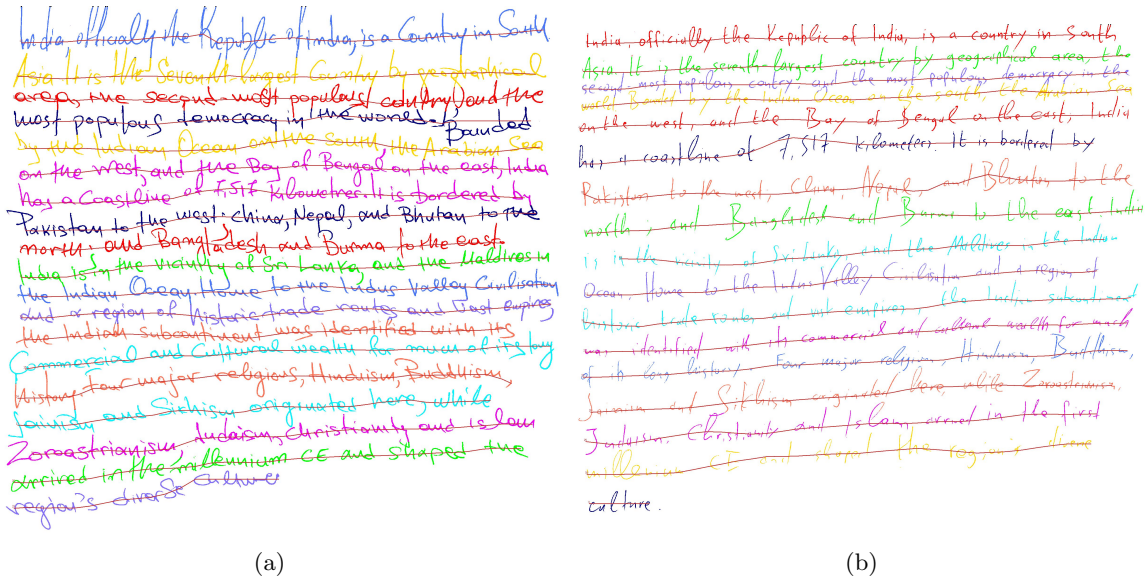 India, officially the Republic of India, is a Country in South
Asia It is the Seventh largest Country by geographical
area, the second most populous country, and the
most populous democracy in the world. Bounded
by the Indian Ocean on the South, the Arabian Sea
on the West, and the Bay of Bengal on the east, India
has a Coastline of 7,517 kilometres. It is bordered by
Pakistan to the west. China, Nepal, and Bhutan to the
north. and Bangladesh and Burma to the east.
India is in the vicinity of Sri Lanka, and the Maldives in
the Indian Ocean Home to the Indus Valley Civilisation
and a region of historic trade routes and vast empires,
the Indian subcontinent was identified with its
Commercial and Cultural wealth for much of its long
history Four major religions, Hinduism, Buddhism,
Jainism and Sikhism originated here, while
Zoroastrianism, Judaism, Christianity and islam
arrived in the millennium CE and shaped the
region's diverse culture
(a)
India, officially the Republic of India, is a country in South
Asia It is the seventh largest country by geographical area, the
second most populous country, and the most populous democracy in the
world Bounded by the Indian Ocean on the south, the Arabian Sea
on the west, and the Bay of Bengal on the east, India
has a coastline of 7,517 kilometers. It is bordered by
Pakistan to the west, China, Nepal, and Bhutan to the
north, and Bangladesh and Burma to the east India
is in the vicinity of Sri Lanka and the Maldives in the Indian
Ocean. Home to the Indus Valley Civilisation and a region of
trade routes and empires, the Indian subcontinent
was identified with its commercial and cultural wealth for much
of its long history. Four major religions, Hinduism, Buddhism,
Jainism and Sikhism originated here, while Zoroastrianism,
Judaism, Christianity and Islam arrived in the first
millennium CE and shaped the region's diverse
culture.
(b)